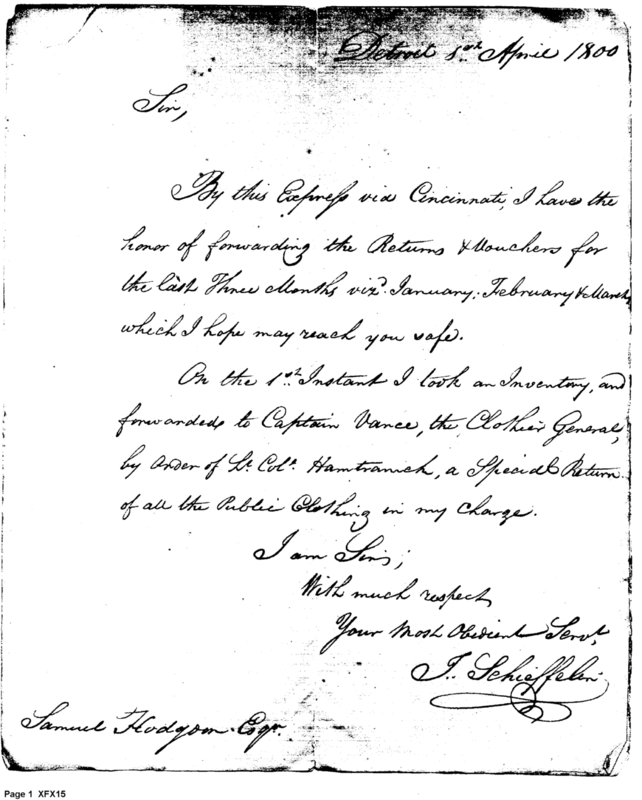 Detroit 1st April 1800
Sir,
By this Express via Cincinnati, I have the
honor of forwarding the Returns & Vouchers for
the last Three Months vizt. January, February & March
which I hope may reach you safe.
On the 1st. Instant I took an Inventory, and
forwarded to Captain Vance, the Clothier General,
by order of Lt. Coll. Hamtramck, a Special Return
of all the Public Clothing in my Charge.
I am Sir,
With much respect
Your Most Obedient Servt.
J. Schieffelin
Samuel Hodgdon Esqr.
Page 1 XFX15